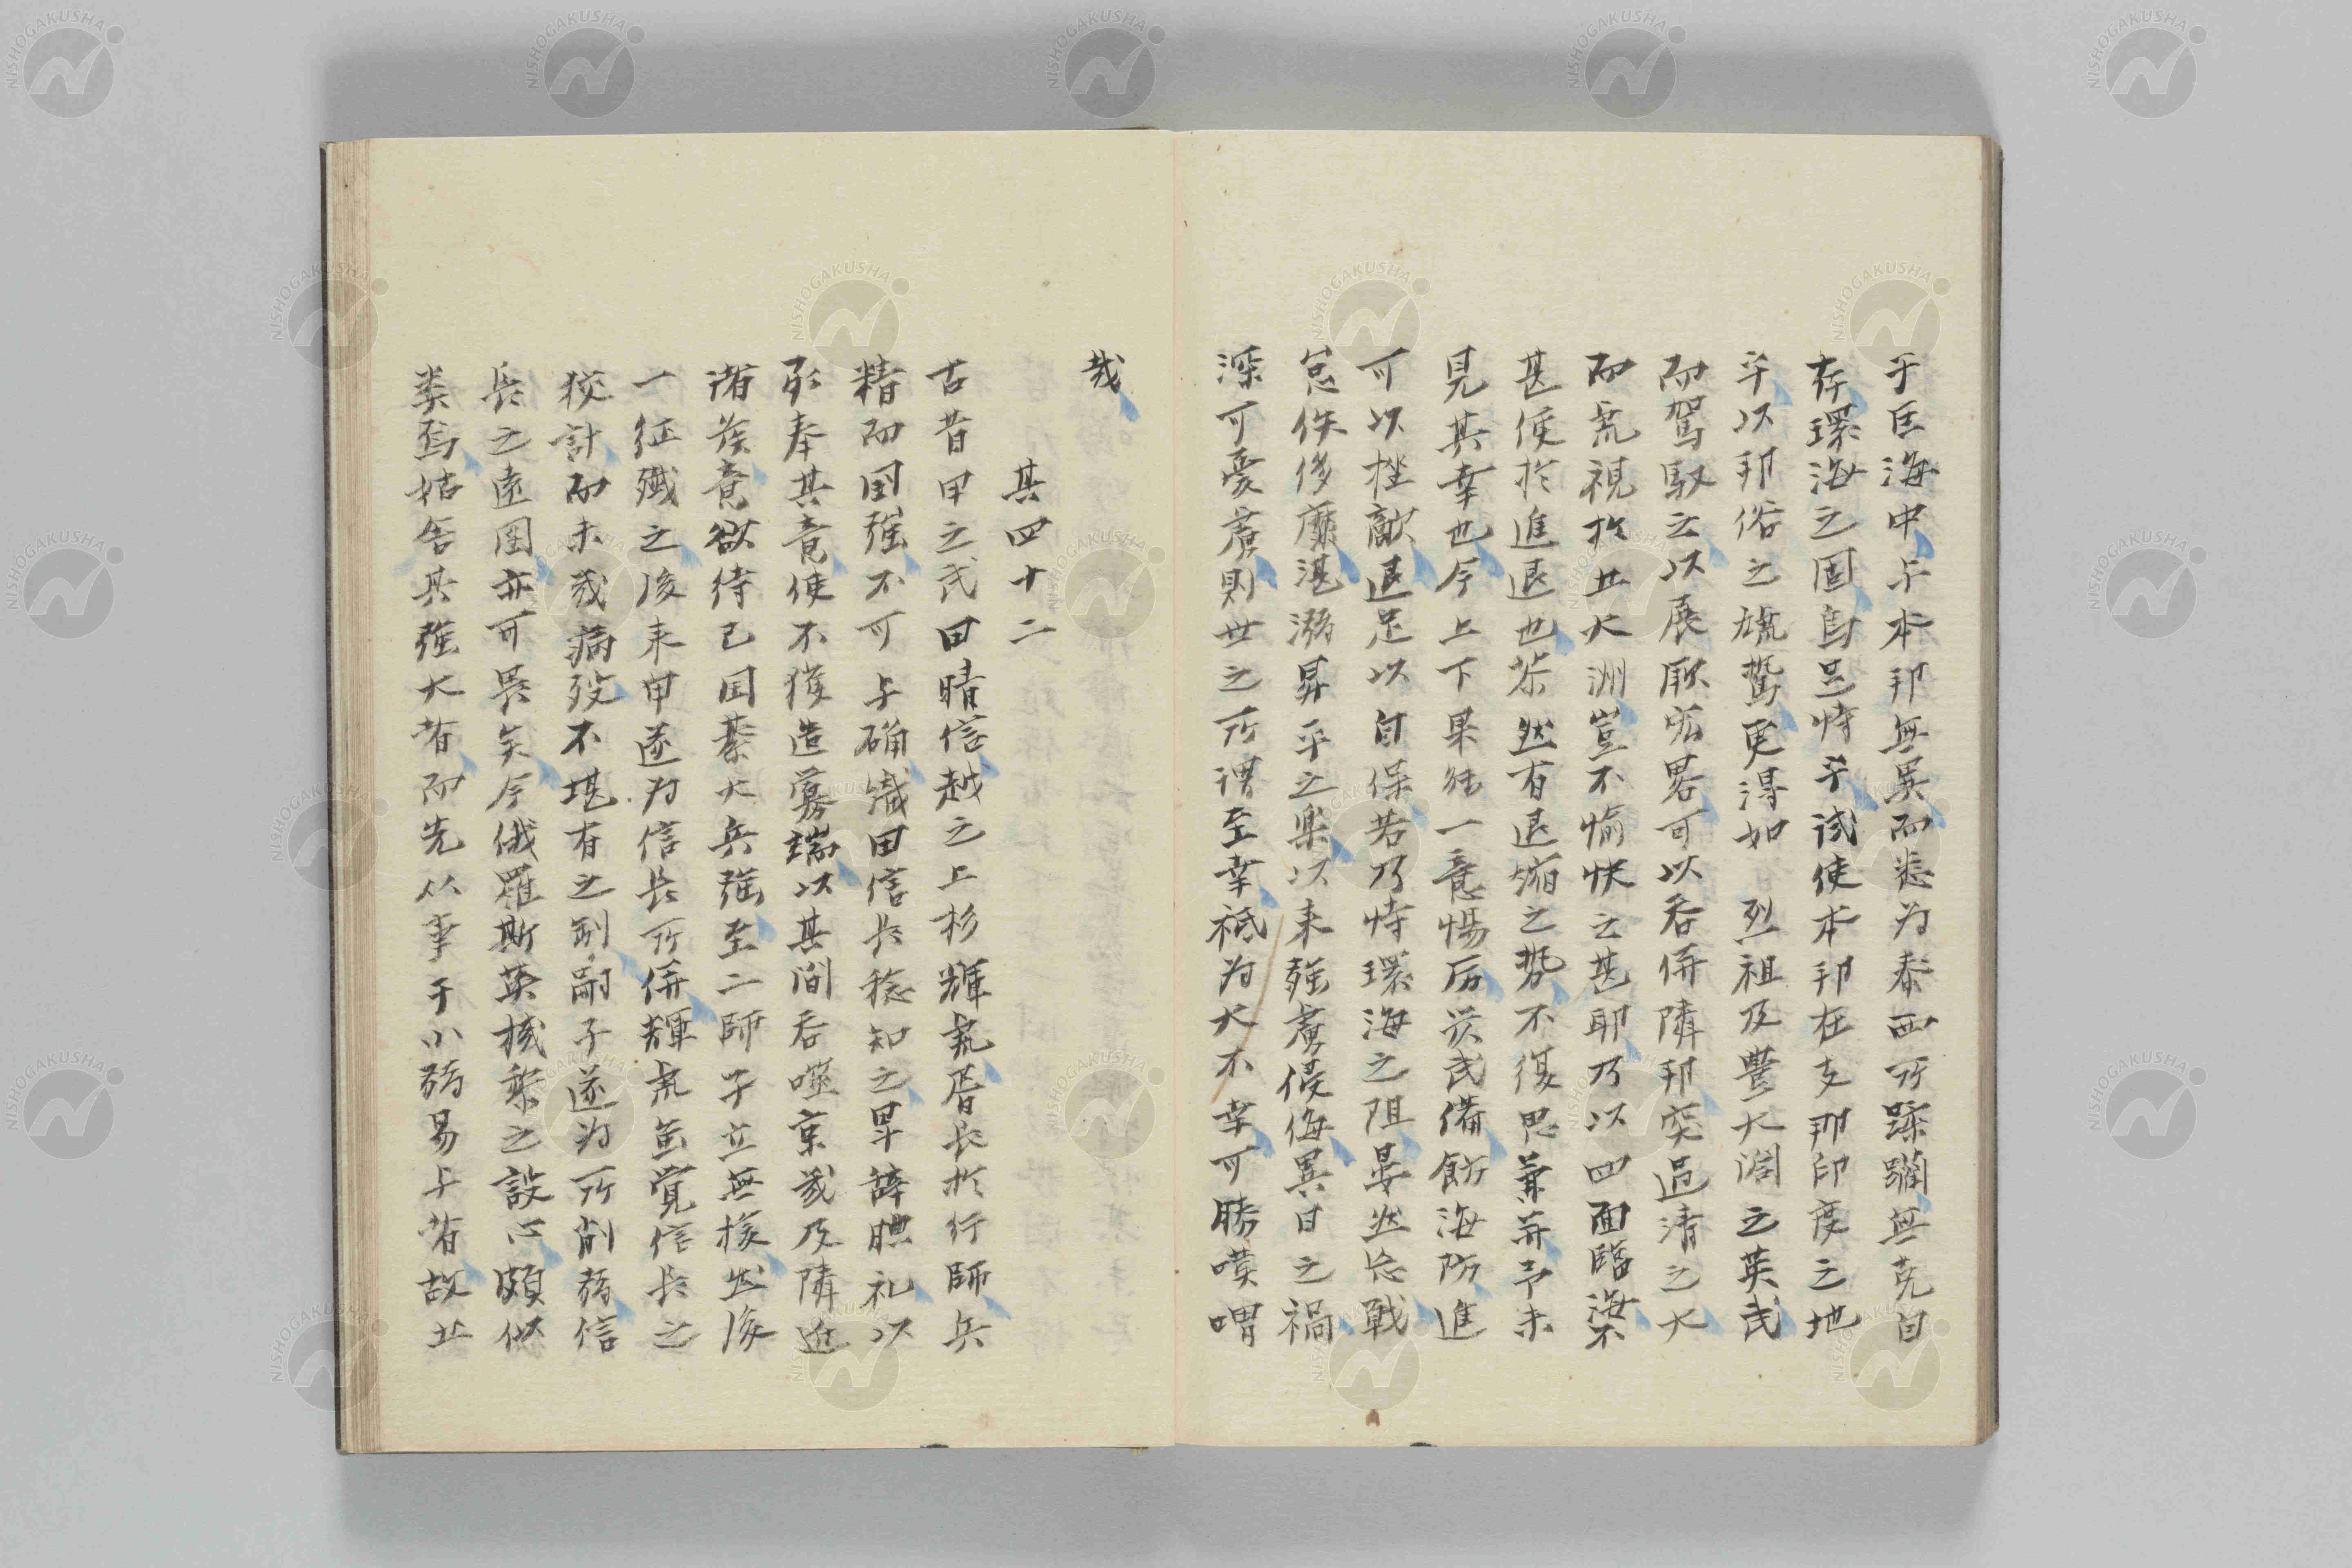 于臣海中与本邦無異而悉为泰西所蹂躙無克自
存環海之固烏足恃乎试使本邦在支那印度之地
乎以邦俗之驍鷙更得如 烈祖及豐大閤之英武
而駕馭之以展厥宏畧可以吞併隣邦突過清之大
而虎視於五大洲豈不愉快之甚耶乃以四面臨海不
甚便於進退也茶然有退縮之勢不復思兼并予未
見其幸也今上下果能一意惕厉炭武備飭海防進
可以挫敵退足以自保若乃恃環海之阻晏然忘戰
怠佚侈靡湛溺昇平之楽以来強虜侵侮異日之禍
深可憂虞則世之所谓至幸祗为大不幸可勝嘆喟
哉
其四十二
古昔甲之武田晴信越之上杉輝虎皆長於行師兵
精而国强不可与确織田信长稔知之卑辞腆礼以
承奉其意使不獲造釁端以其間吞噬京畿及隣近
諸侯意欲待己国綦大兵强至二師孑立無援然後
一征殲之後来甲遂为信长所併輝虎虽覚信长之
狡計而未幾病殁不堪有之嗣子遂为所削弱信
长之遠図亦可畏矣今俄羅斯英機黎之設心頗似
类焉姑舍其强大者而先从事于小弱易与者故五